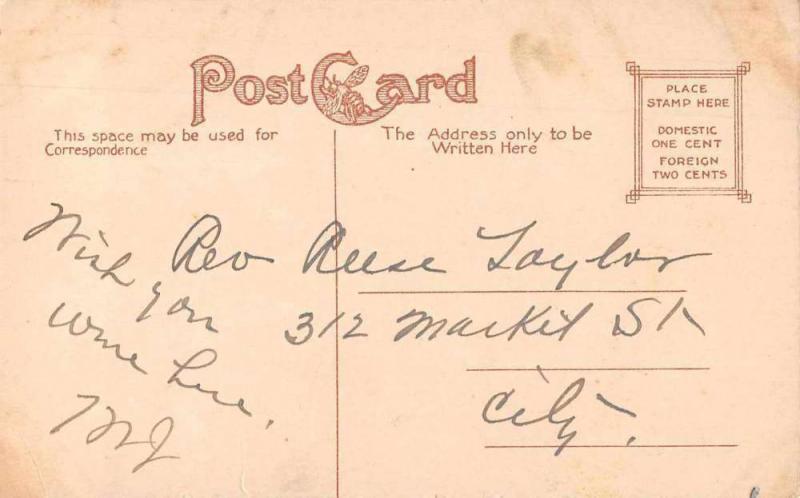 Post Card
This space may be used for
Correspondence
The Address only to be
Written Here
PLACE
STAMP HERE
DOMESTIC
ONE CENT
FOREIGN
TWO CENTS
Wish
you
were here.
MJ
Rev Reese Taylor
312 Market St
City.